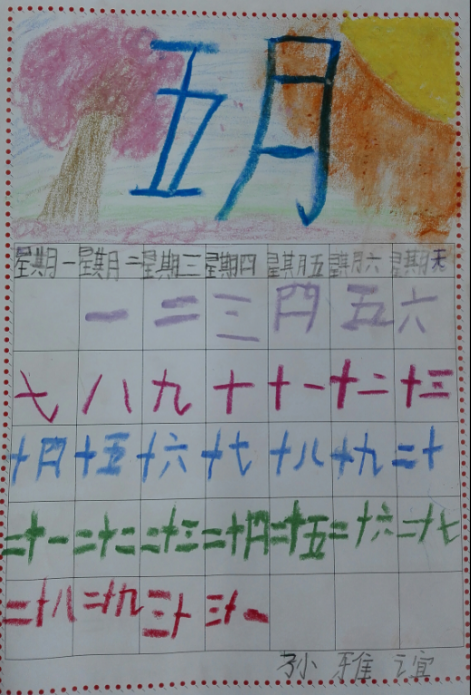 五月
星期一 星期二 星期三 星期四 星期五 星期六 星期天
一 二 三 四 五 六
七 八 九 十 十一 十二 十三
十四 十五 十六 十七 十八 十九 二十
二十一 二十二 二十三 二十四 二十五 二十六 二十七
二十八 二十九 三十 三十一
孙雅谊